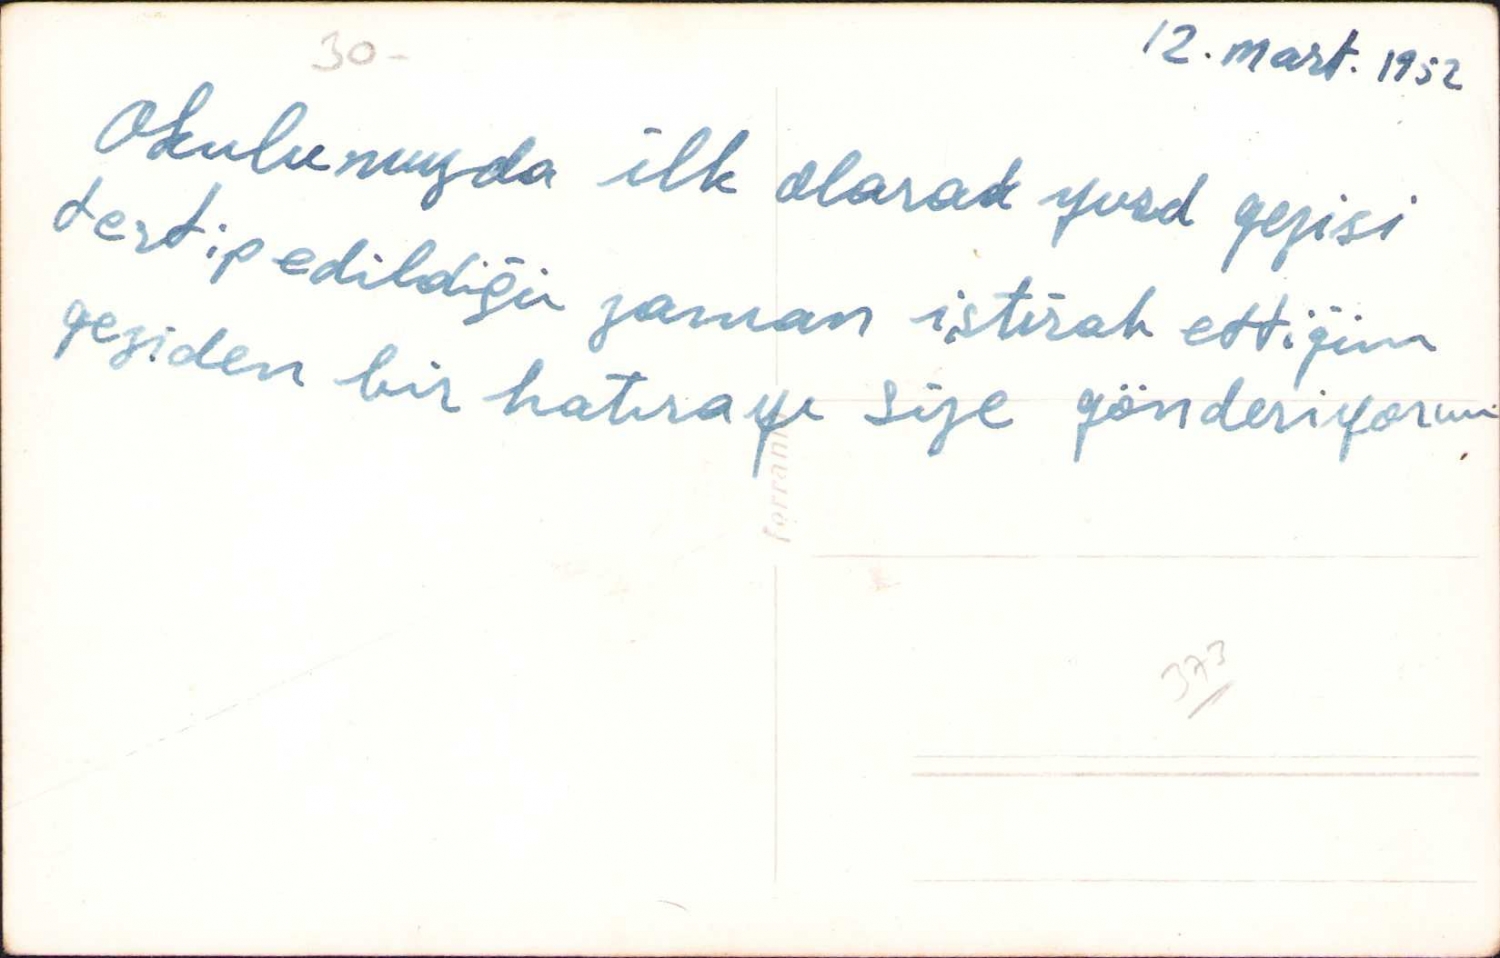 30-
12. mart. 1952
Okulumuzda ilk olarak yurd gezisi
tertip edildiği zaman iştirak ettiğim
geziden bir hatırayı size gönderiyorum
Ferrania
373